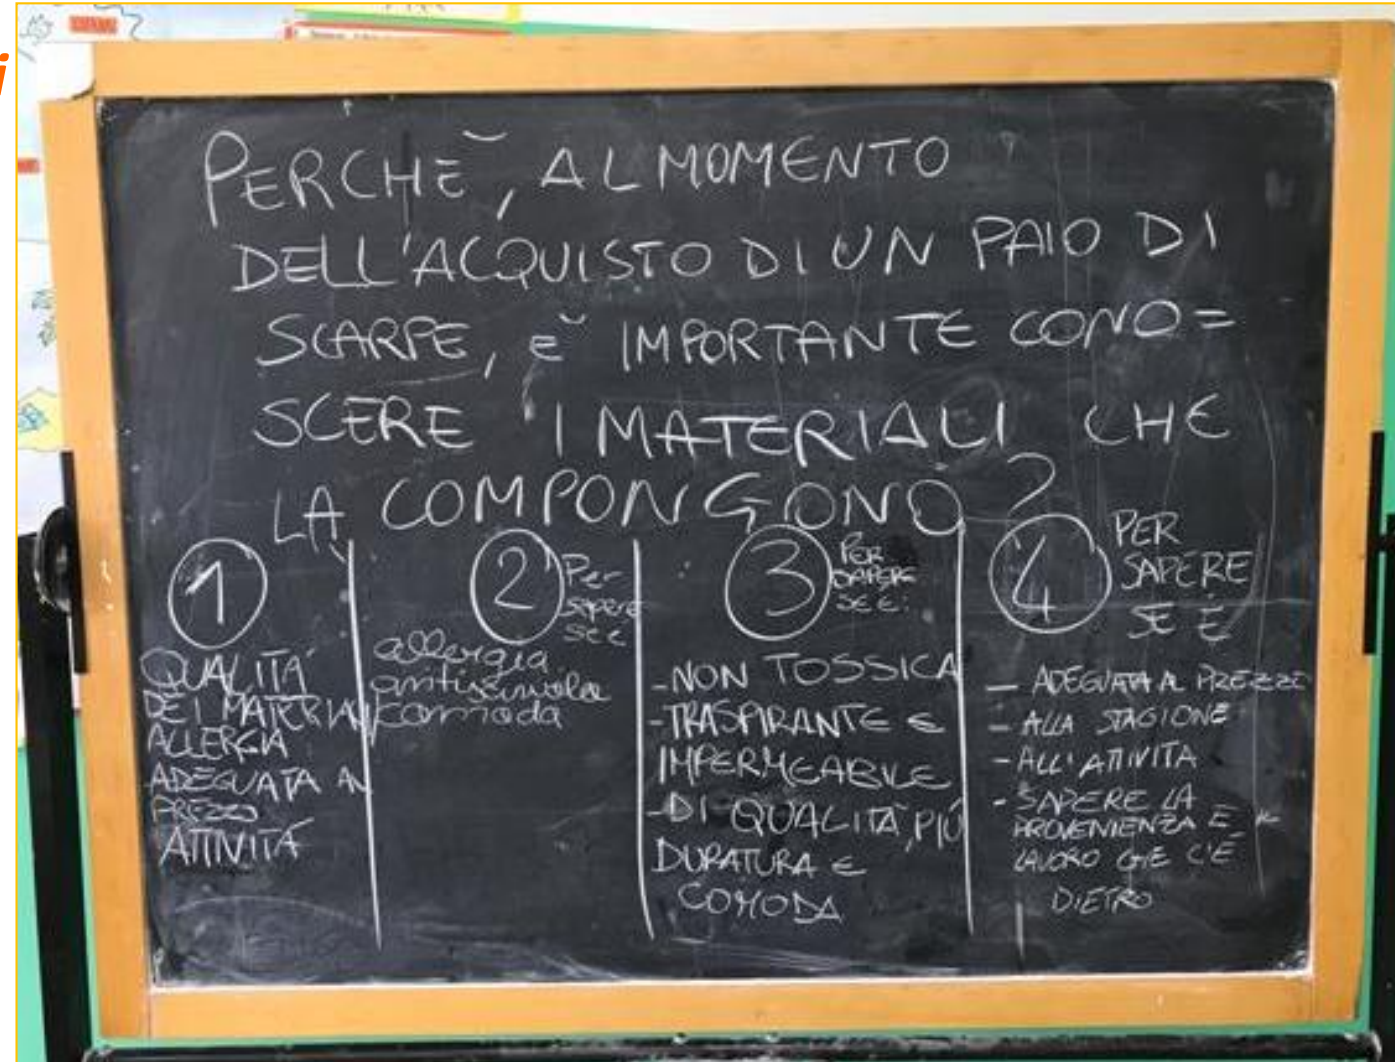 i
PERCHĔ, AL MOMENTO
DELL'ACQUISTO DI UN PAIO DI
SCARPE, Ĕ IMPORTANTE CONO=
SCERE I MATERIALI CHE
LA COMPONGONO?
1
QUALITÀ
DEI MATERIALI
ALLERGIA
ADEGUATA AL
PREZZO
ATTIVITÀ
2 Per
sapere
se è
allergia
antiscivolo
comoda
3 PER
SAPERE
SE È:
-NON TOSSICA
-TRASPIRANTE E
IMPERMEABILE
-DI QUALITÀ, PIÙ
DURATURA E
COMODA
4 PER
SAPERE
SE È
- ADEGUATA AL PREZZO
- ALLA STAGIONE
- ALL'ATTIVITÀ
- SAPERE LA
PROVENIENZA E IL
LAVORO CHE C'È
DIETRO